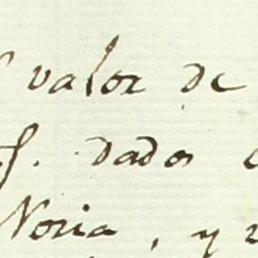 valor de
dados
Noria, y